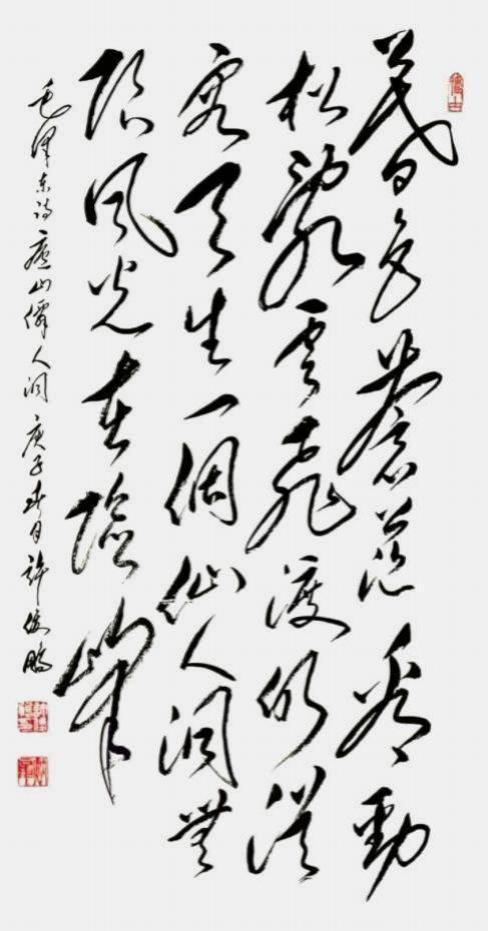 暮色蒼茫看勁
松亂雲飛渡仍從
容天生一個仙人洞無
限風光在險峰
毛澤东詩廬山僊人洞庚子春日許俊鵬